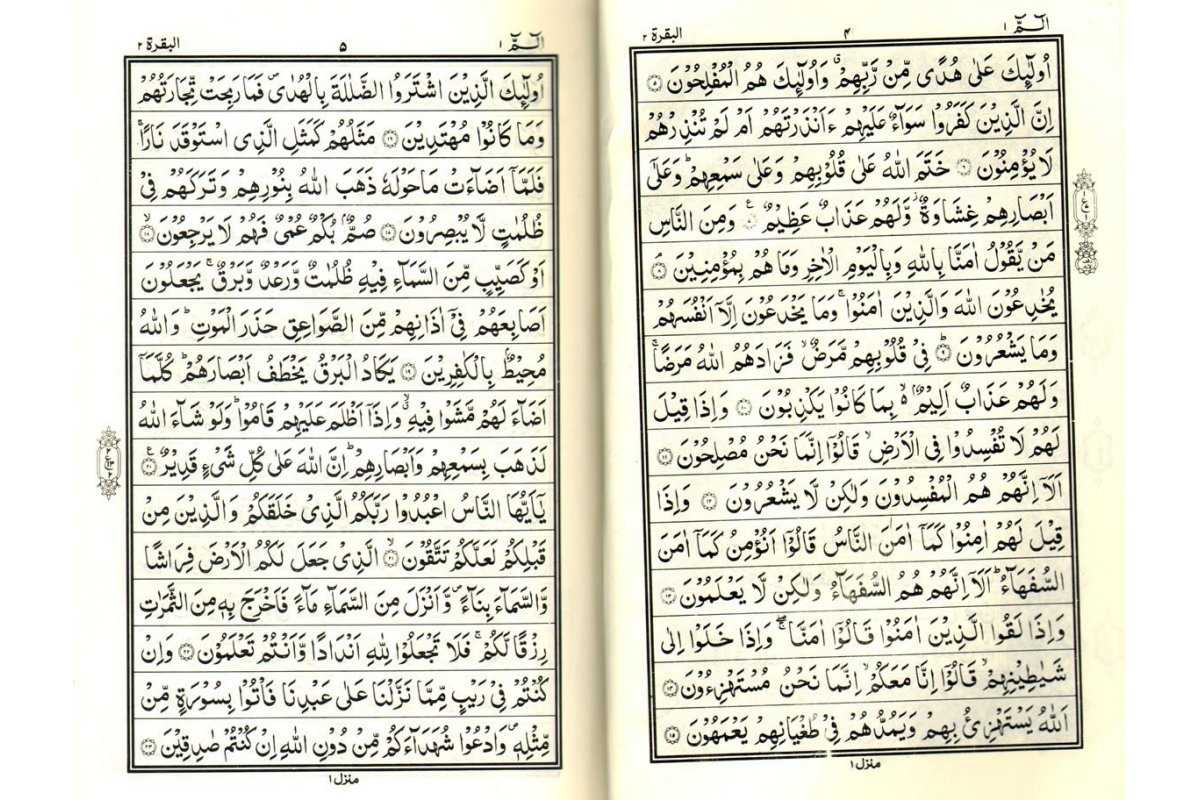 الٓمّٓ ١
۴
البقرة ٢
اُولٰٓئِكَ عَلٰى هُدًى مِّنْ رَّبِّهِمْ ۙ وَاُولٰٓئِكَ هُمُ الْمُفْلِحُوْنَ ۝٥
اِنَّ الَّذِيْنَ كَفَرُوْا سَوَآءٌ عَلَيْهِمْ ءَاَنْذَرْتَهُمْ اَمْ لَمْ تُنْذِرْهُمْ
لَا يُؤْمِنُوْنَ ۝٦ خَتَمَ اللّٰهُ عَلٰى قُلُوْبِهِمْ وَعَلٰى سَمْعِهِمْ ؕ وَعَلٰٓى
اَبْصَارِهِمْ غِشَاوَةٌ ؗ وَّلَهُمْ عَذَابٌ عَظِيْمٌ ۝٧ ع وَمِنَ النَّاسِ
مَنْ يَّقُوْلُ اٰمَنَّا بِاللّٰهِ وَبِالْيَوْمِ الْاٰخِرِ وَمَا هُمْ بِمُؤْمِنِيْنَ ۝٨
يُخٰدِعُوْنَ اللّٰهَ وَالَّذِيْنَ اٰمَنُوْا ۚ وَمَا يَخْدَعُوْنَ اِلَّآ اَنْفُسَهُمْ
وَمَا يَشْعُرُوْنَ ۝٩ؕ فِيْ قُلُوْبِهِمْ مَّرَضٌ ۙ فَزَادَهُمُ اللّٰهُ مَرَضًا ۚ
وَلَهُمْ عَذَابٌ اَلِيْمٌۢ ۙ۬ بِمَا كَانُوْا يَكْذِبُوْنَ ۝١٠ وَاِذَا قِيْلَ
لَهُمْ لَا تُفْسِدُوْا فِي الْاَرْضِ ۙ قَالُوْٓا اِنَّمَا نَحْنُ مُصْلِحُوْنَ ۝١١
اَلَآ اِنَّهُمْ هُمُ الْمُفْسِدُوْنَ وَلٰكِنْ لَّا يَشْعُرُوْنَ ۝١٢ وَاِذَا
قِيْلَ لَهُمْ اٰمِنُوْا كَمَآ اٰمَنَ النَّاسُ قَالُوْٓا اَنُؤْمِنُ كَمَآ اٰمَنَ
السُّفَهَآءُ ؕ اَلَآ اِنَّهُمْ هُمُ السُّفَهَآءُ وَلٰكِنْ لَّا يَعْلَمُوْنَ ۝١٣
وَاِذَا لَقُوا الَّذِيْنَ اٰمَنُوْا قَالُوْٓا اٰمَنَّا ۖۚ وَاِذَا خَلَوْا اِلٰى
شَيٰطِيْنِهِمْ ۙ قَالُوْٓا اِنَّا مَعَكُمْ ۙ اِنَّمَا نَحْنُ مُسْتَهْزِءُوْنَ ۝١٤
اَللّٰهُ يَسْتَهْزِئُ بِهِمْ وَيَمُدُّهُمْ فِيْ طُغْيَانِهِمْ يَعْمَهُوْنَ ۝١٥
منزل ١
الٓمّٓ ١
۵
البقرة ٢
اُولٰٓئِكَ الَّذِيْنَ اشْتَرَوُا الضَّلٰلَةَ بِالْهُدٰى ۪ فَمَا رَبِحَتْ تِّجَارَتُهُمْ
وَمَا كَانُوْا مُهْتَدِيْنَ ۝١٦ مَثَلُهُمْ كَمَثَلِ الَّذِي اسْتَوْقَدَ نَارًا ۚ
فَلَمَّآ اَضَآءَتْ مَا حَوْلَهٗ ذَهَبَ اللّٰهُ بِنُوْرِهِمْ وَتَرَكَهُمْ فِيْ
ظُلُمٰتٍ لَّا يُبْصِرُوْنَ ۝١٧ صُمٌّۢ بُكْمٌ عُمْيٌ فَهُمْ لَا يَرْجِعُوْنَ ۝١٨ۙ
اَوْ كَصَيِّبٍ مِّنَ السَّمَآءِ فِيْهِ ظُلُمٰتٌ وَّرَعْدٌ وَّبَرْقٌ ۚ يَجْعَلُوْنَ
اَصَابِعَهُمْ فِيْٓ اٰذَانِهِمْ مِّنَ الصَّوَاعِقِ حَذَرَ الْمَوْتِ ؕ وَاللّٰهُ
مُحِيْطٌۢ بِالْكٰفِرِيْنَ ۝١٩ يَكَادُ الْبَرْقُ يَخْطَفُ اَبْصَارَهُمْ ؕ كُلَّمَآ
اَضَآءَ لَهُمْ مَّشَوْا فِيْهِ ۙۗ وَاِذَآ اَظْلَمَ عَلَيْهِمْ قَامُوْا ؕ وَلَوْ شَآءَ اللّٰهُ
لَذَهَبَ بِسَمْعِهِمْ وَاَبْصَارِهِمْ ؕ اِنَّ اللّٰهَ عَلٰى كُلِّ شَيْءٍ قَدِيْرٌ ۝٢٠ ع
يٰٓاَيُّهَا النَّاسُ اعْبُدُوْا رَبَّكُمُ الَّذِيْ خَلَقَكُمْ وَالَّذِيْنَ مِنْ
قَبْلِكُمْ لَعَلَّكُمْ تَتَّقُوْنَ ۝٢١ۙ الَّذِيْ جَعَلَ لَكُمُ الْاَرْضَ فِرَاشًا
وَّالسَّمَآءَ بِنَآءً ۪ وَّاَنْزَلَ مِنَ السَّمَآءِ مَآءً فَاَخْرَجَ بِهٖ مِنَ الثَّمَرٰتِ
رِزْقًا لَّكُمْ ۚ فَلَا تَجْعَلُوْا لِلّٰهِ اَنْدَادًا وَّاَنْتُمْ تَعْلَمُوْنَ ۝٢٢ وَاِنْ
كُنْتُمْ فِيْ رَيْبٍ مِّمَّا نَزَّلْنَا عَلٰى عَبْدِنَا فَاْتُوْا بِسُوْرَةٍ مِّنْ
مِّثْلِهٖ ۪ وَادْعُوْا شُهَدَآءَكُمْ مِّنْ دُوْنِ اللّٰهِ اِنْ كُنْتُمْ صٰدِقِيْنَ ۝٢٣
منزل ١